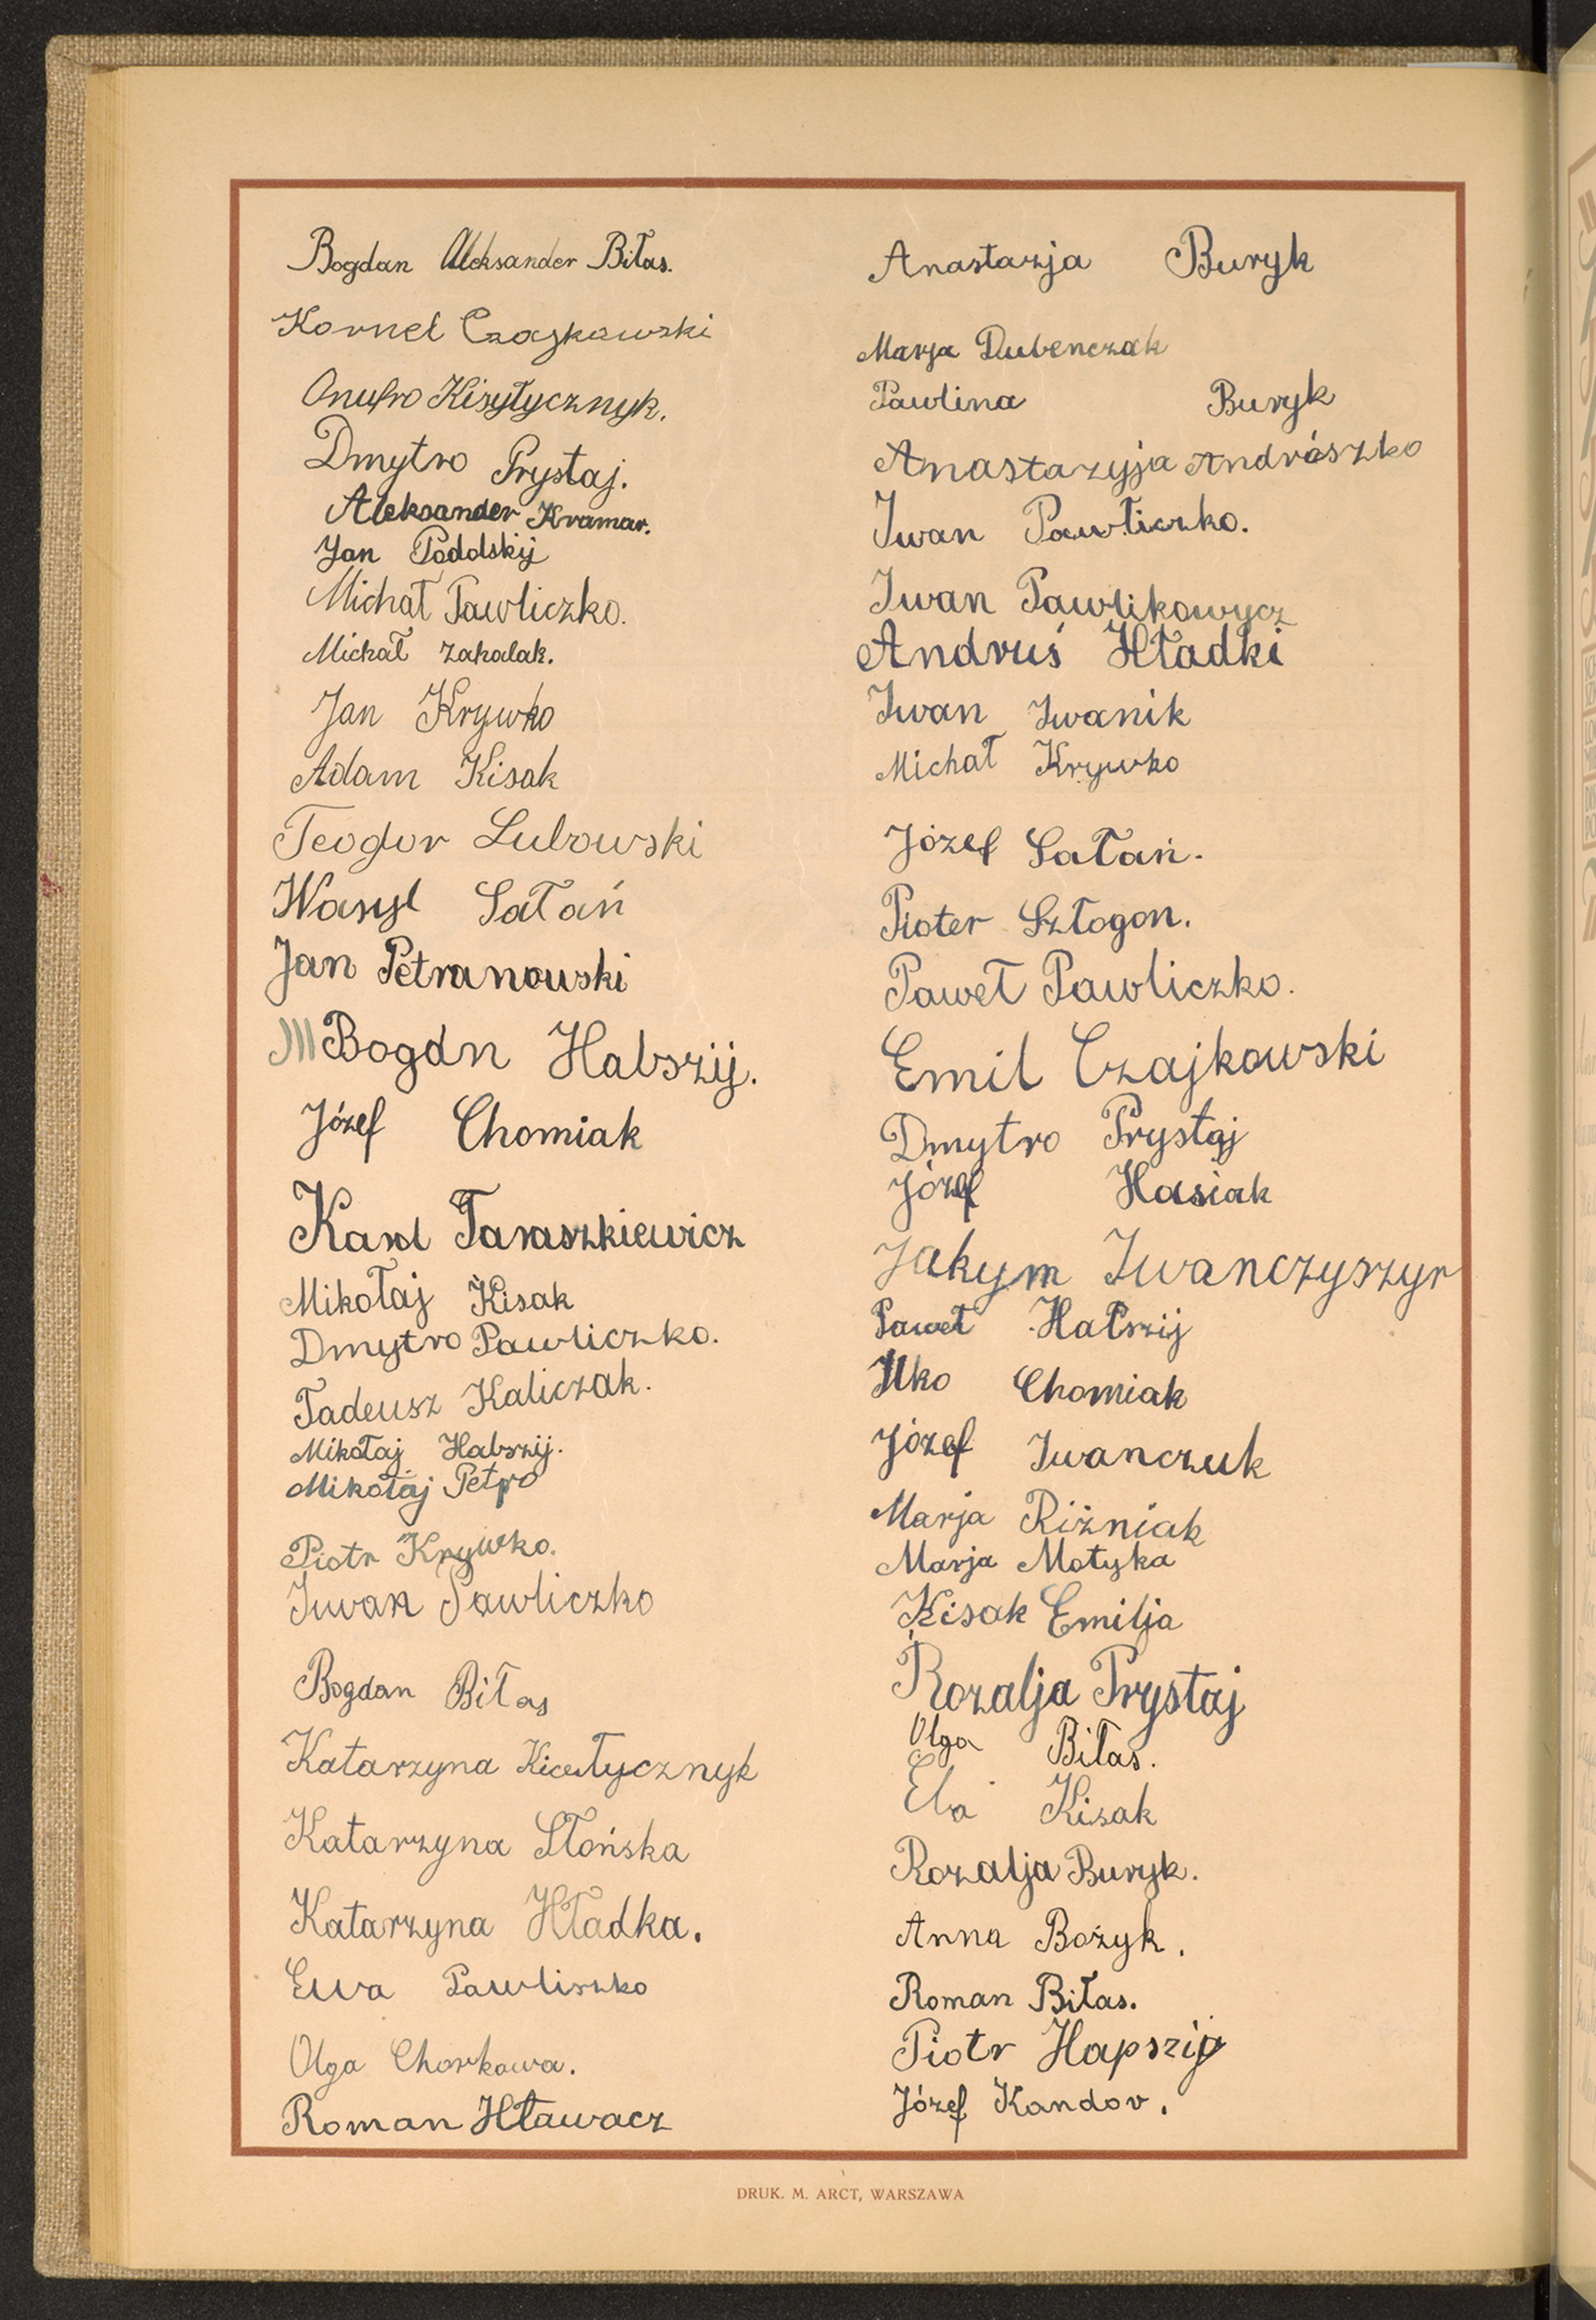 Bogdan Aleksander Biłas.
Kornel Czajkowski
Onufro Kisyłycznyk.
Dmytro Prystaj.
Aleksander Kramar.
Jan Podolskij
Michał Pawliczko.
Michał Zahalak.
Jan Krywko
Adam Kisak
Teodor Lubowski
Wasyl Sałań
Jan Petranowski
Bogdn Habszij.
Józef Chomiak
Karol Taraszkiewicz
Mikołaj Kisak
Dmytro Pawliczko.
Tadeusz Kaliczak.
Mikołaj Habszij.
Mikołaj Petro
Piotr Krywko.
Iwan Pawliczko
Bogdan Biłas
Katarzyna
Katarzyna Słońska
Katarzyna Hładka.
Ewa Pawliszko
Olga Chorkawa.
Roman Hławacz
Anastazja Buryk
Marja Dubenczak
Pawlina Buryk
Anastazyja Andrászko
Iwan Pawliczko.
Iwan Pawlikowycz
Andruś Hładki
Iwan Iwanik
Michał Krywko
Józef Sałań.
Pioter Szłogon.
Paweł Pawliczko.
Emil Czajkowski
Dmytro Prystaj
Józef Hasiak
Jakym Iwanczyszyn
Paweł Habszij
Ilko Chomiak
Józef Iwanczuk
Marja Riżniak
Marja Motyka
Kisak Emilja
Rozalja Prystaj
Olga Biłas.
Kisak
Rozalja Buryk.
Anna Bożyk.
Roman Biłas.
Piotr Hapszij
Józef Kandov.
DRUK. M. ARCT, WARSZAWA